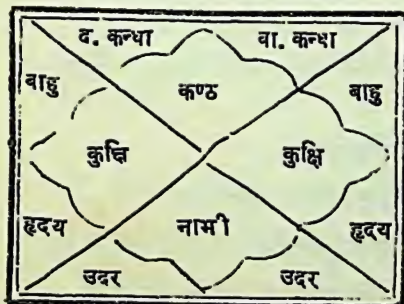 द. कन्धा वा. कन्धा
बाहु कण्ठ बाहु
कुक्षि कुक्षि
हृदय नाभी हृदय
उदर उदर